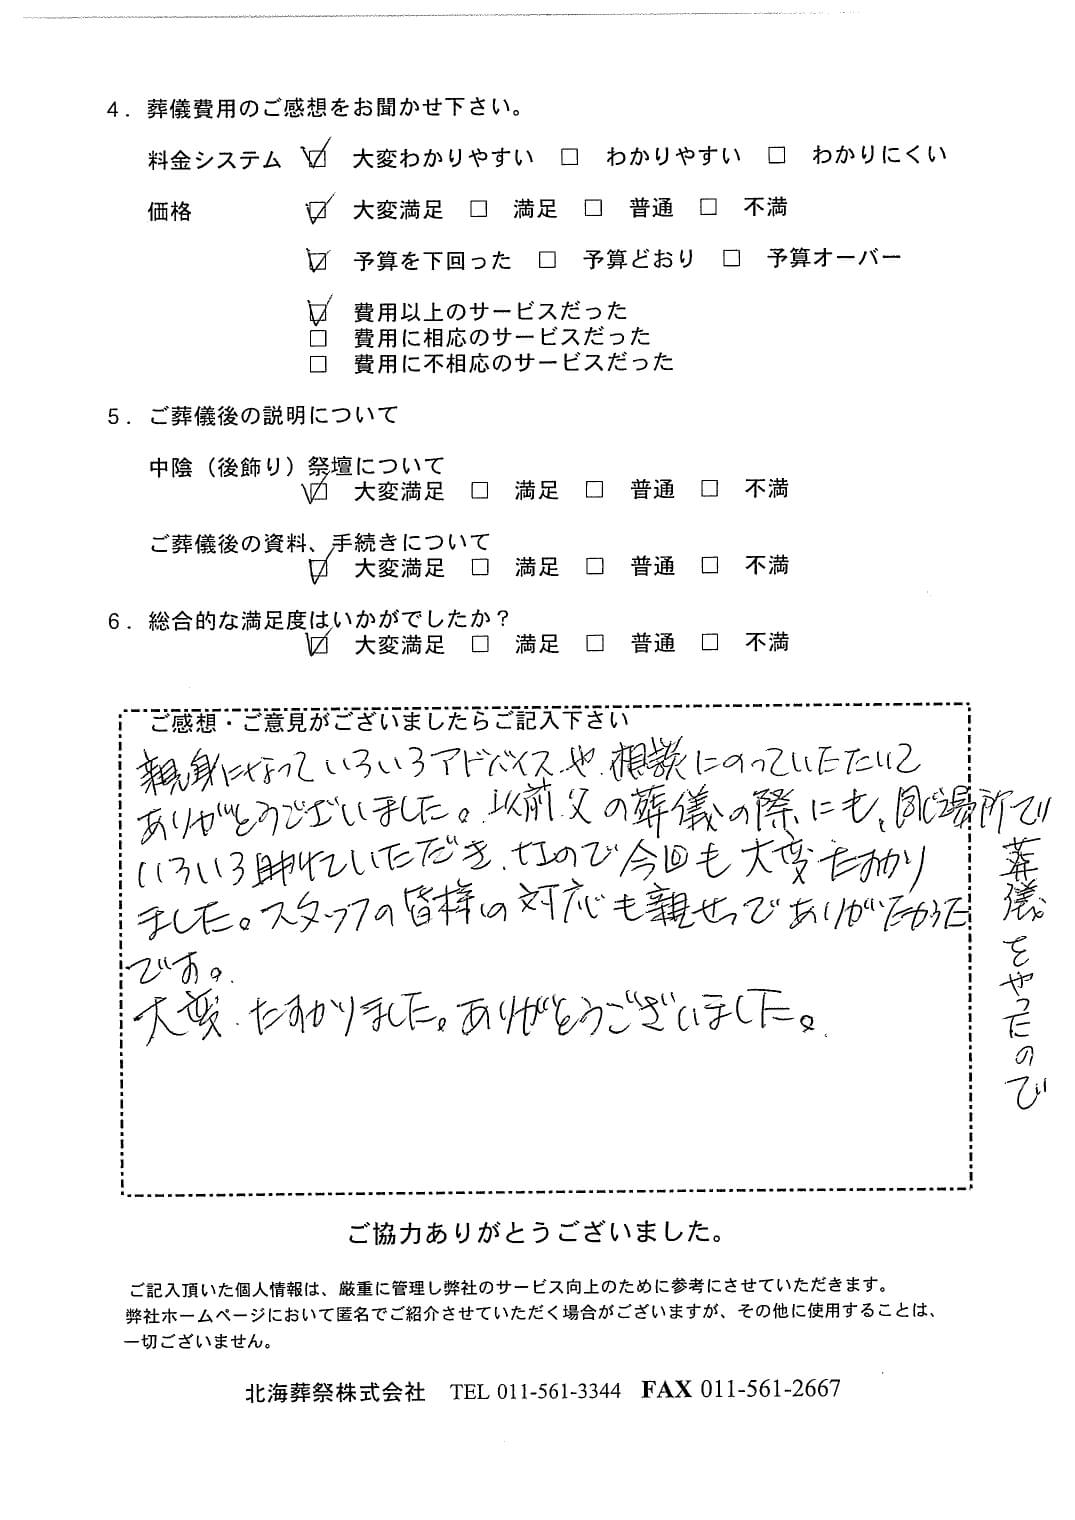 4．葬儀費用のご感想をお聞かせ下さい。
料金システム ☑ 大変わかりやすい □ わかりやすい □ わかりにくい
価格 ☑ 大変満足 □ 満足 □ 普通 □ 不満
☑ 予算を下回った □ 予算どおり □ 予算オーバー
☑ 費用以上のサービスだった
□ 費用に相応のサービスだった
□ 費用に不相応のサービスだった
5．ご葬儀後の説明について
中陰（後飾り）祭壇について
☑ 大変満足 □ 満足 □ 普通 □ 不満
ご葬儀後の資料、手続きについて
☑ 大変満足 □ 満足 □ 普通 □ 不満
6．総合的な満足度はいかがでしたか？
☑ 大変満足 □ 満足 □ 普通 □ 不満
ご感想・ご意見がございましたらご記入下さい
親身になっていろいろアドバイスや相談にのっていただいて
ありがとうございました。以前父の葬儀の際にも、同じ場所で
葬儀をやったので
いろいろ助けていただき、なので今回も大変たすかり
ました。スタッフの皆様の対応も親せつでありがたかった
です。
大変たすかりました。ありがとうございました。
ご協力ありがとうございました。
ご記入頂いた個人情報は、厳重に管理し弊社のサービス向上のために参考にさせていただきます。
弊社ホームページにおいて匿名でご紹介させていただく場合がございますが、その他に使用することは、
一切ございません。
北海葬祭株式会社 TEL 011-561-3344 FAX 011-561-2667